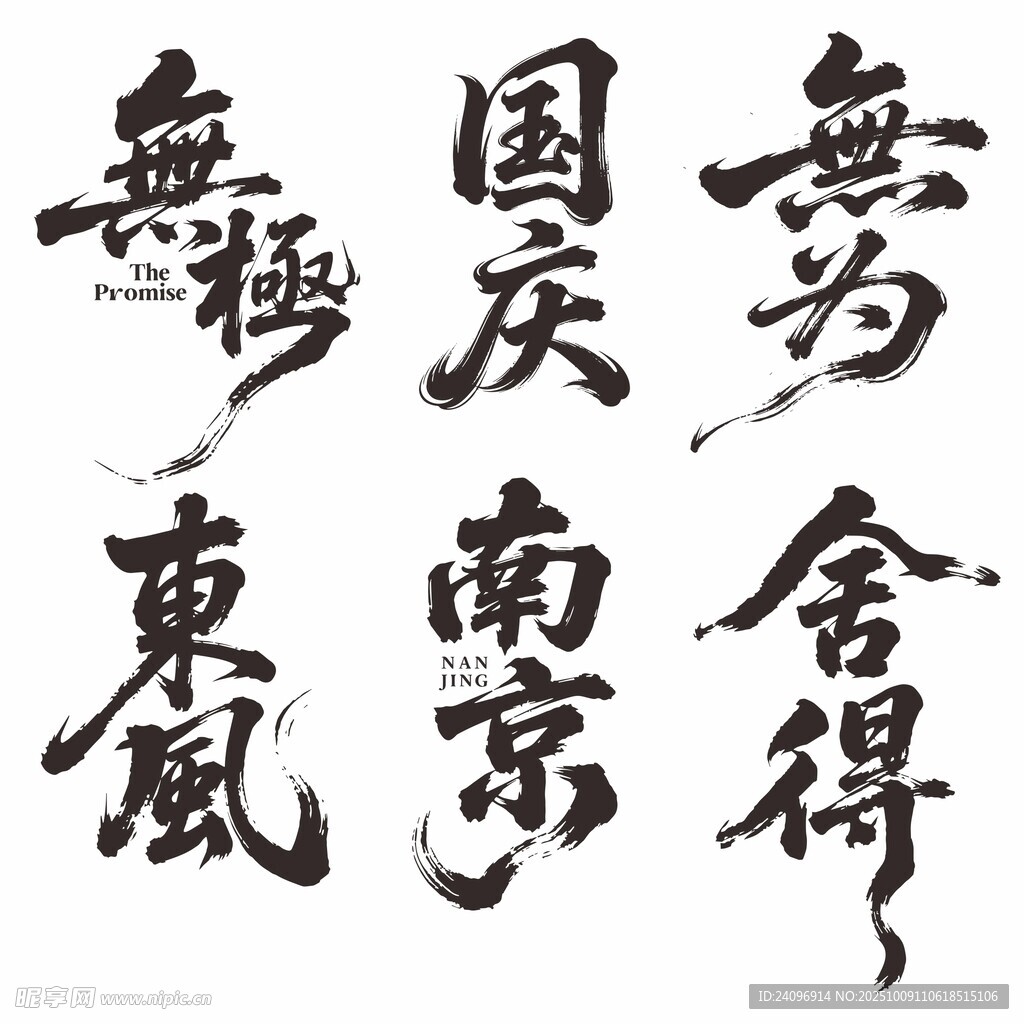 無極
The
Promise
国庆
無为
東風
南
NAN
JING
京
舍得
昵享网 www.nipic.cn
ID:24096914 NO:20251009110618515106